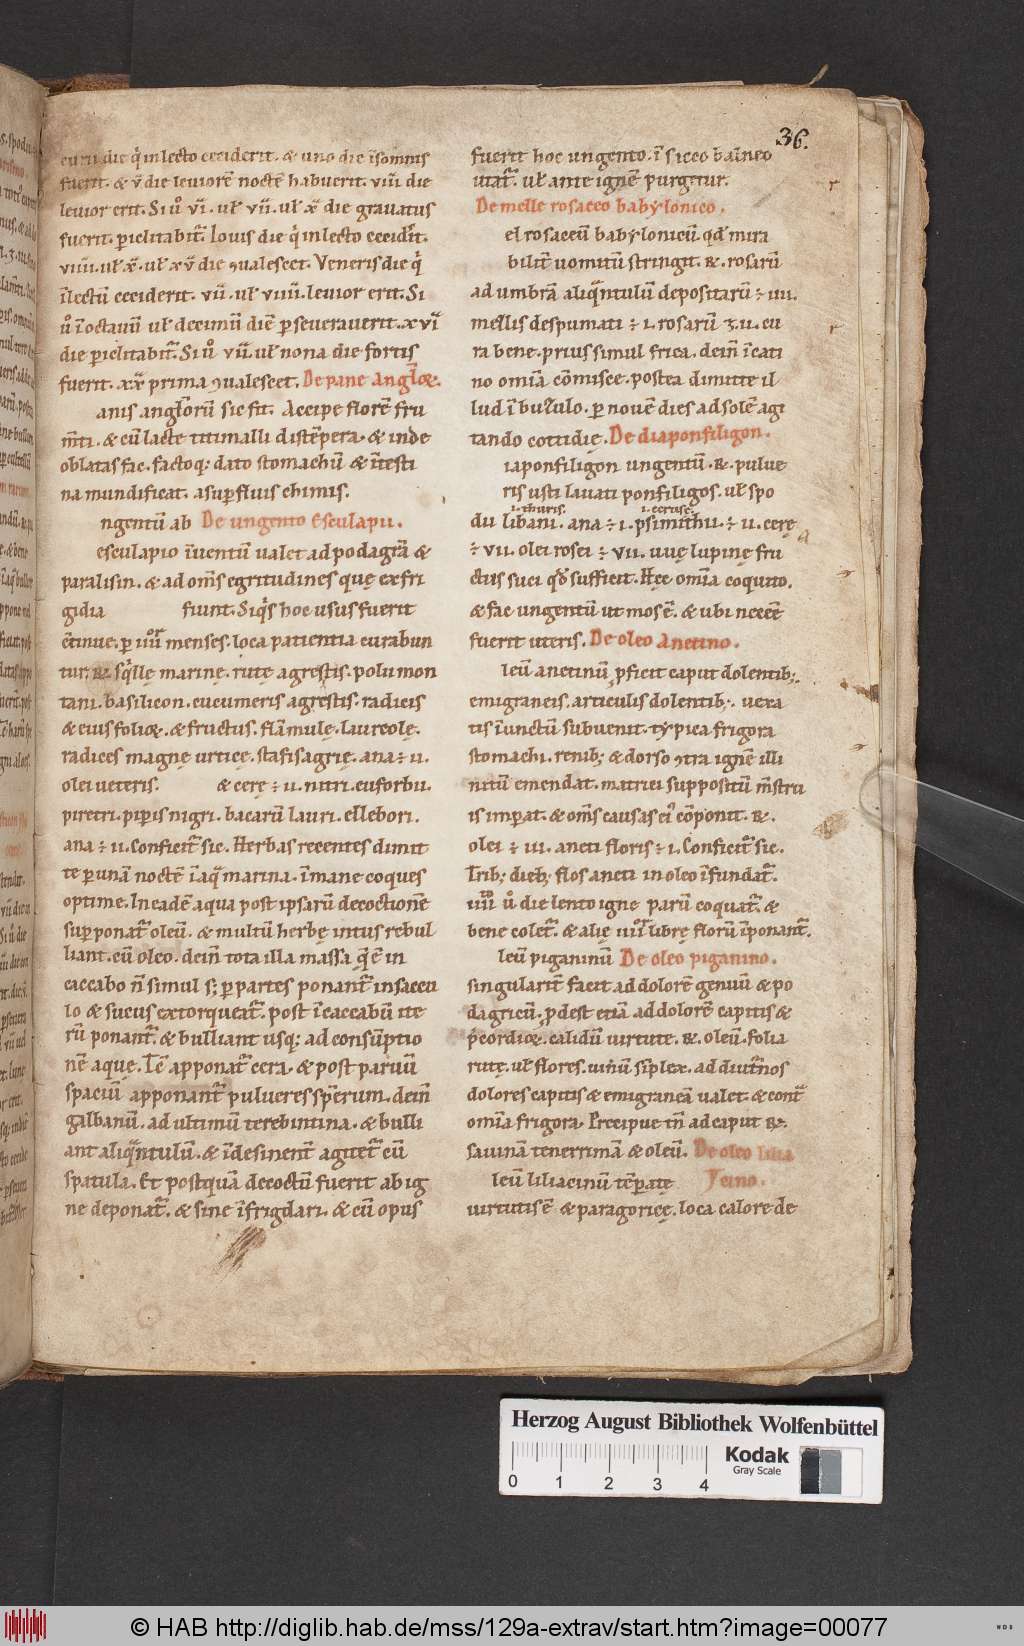 36.
curii die q̇ in lecto ceciderit. & uno die īsomnis
fuerit. & v̄ die leuiorē noctē habuerit. viii die
leuior erit. Si u̇o vi. ul̄ vii. ul̄ x̄ die grauatus
fuerit. periclitabit᷑. Iouis die q̇ in lecto cecider̄it.
viiii. ul̄ x̄. ul̄ xv̄ die ꝯualescet. Veneris die q̇
ī lectū ceciderit. vii. ul̄ viiii. leuior erit. Si
u̇o ī octauū ul̄ decimū diē ꝑseuerauerit. xvi᷑
die ꝑiclitabit᷑. Si u̇o vii. ul̄ nona die fortis
fuerit. xx̄ prima ꝯualescet. De pane angl̄oꝝ.
anis angl̄orū sic fit. Accipe florē fru
m̄ti. & cū lacte titimalli distēpera. & inde
oblatas fac. factoq; dato stomachū & ītesti
na mundificat. a suꝑfluis chimis.
ngentū ab De ungento Esculapii.
esculapio īuentū ualet ad podagrā &
paralisin. & ad om̄s egritudines quę ex fri
gidia fiunt. Siq̇s hoc usus fuerit
c̄tinue. ꝑ iiiior menses. loca patientia curabun
tur. R̷. sq̇llę marinę. rutę agrestis. polii mon
tani. basilicon. cucumeris agrestis. radicis
& eius folioꝝ. & fructus. flāmulę. laureolę.
radices magnę urticę. stafisagrię. ana ÷ ii.
olei ueteris. & cerę ÷ ii. nitri. euforbii.
piretri. piꝑis nigri. bacarū lauri. ellebori.
ana ÷ ii. Conficit᷑ sic. Herbas recentes dimit
te ꝑ unā noctē ī aq̄ marina. ī mane coques
optime. In eadē aqua post ipsarū decoctionē
suꝑponat᷑ oleū. & multū herbę intus rebul
liant. cū oleo. dein̄ tota illa massa q̄ ē in
caccabo n̄ simul s; ꝑ partes ponant᷑ in saccu
lo & sucus extorqueat᷑. post ī caccabū ite
rū ponant᷑. & bulliant usq; ad consūptio
nē aquę. Tc̄ apponat᷑ cera. & post paruū
spaciū apponant᷑ pulueres sp̄erum. dein̄
galbanū. ad ultimū terebintina. & bulli
ant aliq̄ntulū. & īdesinent᷑ agitet᷑ cū
spatula. Et postquā decoctū fuerit ab ig
ne deponat᷑. & sine īfrigdari. & cū opus
fuerit hoc ungento. ī sicco balneo
utat᷑. ul̄ ante ignē purgetur.
De melle rosaceo babylonico.
el rosaceū babylonicū. qd̄ mira
bilit᷑ uomitū stringit. R̷. rosarū
ad umbrā aliq̄ntulū depositarū ÷ iiii.
mellis despumati ÷ i. rosarū ʒ. ii. cu
ra bene. prius simul frica. dein̄ ī cati
no omīa cōmisce. postea dimitte il
lud ī buzulo. ꝑ nouē dies ad solē agi
tando cottidie. De diaponfiligon.
iaponfiligon ungentū. R̷. pulue
ris usti lauati ponfiligos. ul̄ spo
.i. thuris. .i. ceruse.
dii libani. ana ÷ i. psimithii. ÷ ii. cerę
÷ vii. olei rosei ÷ vii. uuę lupinę fru
ctus suci qd̄ sufficit. Hęc omīa coquito.
& fac ungentū ut mos ē. & ubi necēē
fuerit uteris. De oleo Anetino.
leū anetinū ꝓficit caput dolentib;.
emigraneis. articulis dolentib;. uexa
tis īunctū subuenit. typica frigora
stomachi. renib; & dorso ꝯtra ignē illi
nitū emendat. matrici suppositū m̄stru
is imꝑat. & om̄s causas ei᷒ cōponit. R̷.
olei ÷ iii. aneti floris ÷ i. Conficit᷑ sic.
Trib; dieb; flos aneti in oleo īfundat᷑.
iiiito u̇o die lento igne parū coquat᷑. &
bene colet᷑. & alię iiiior librę florū īponant᷑.
leū piganinū De oleo piganino.
singularit᷑ facit ad dolorē genuū & po
dagricū. ꝓdest etiā ad dolorē capitis &
p̄cordioꝝ. calidū uirtute. R̷. oleū. folia
rutę. ul̄ flores. uinū sīplex. ad diut᷑nos
dolores capitis & emigraneā ualet. & cont᷑
omīa frigora. Precipue tn̄ ad caput R̷.
sauinā tenerrimā & oleū. De oleo lilia
leū liliacinū tēperatę Ycino.
uirtutis ē & paragoricę. loca calore de
Herzog August Bibliothek Wolfenbüttel
0 1 2 3 4
Kodak
Gray Scale
© HAB http://diglib.hab.de/mss/129a-extrav/start.htm?image=00077